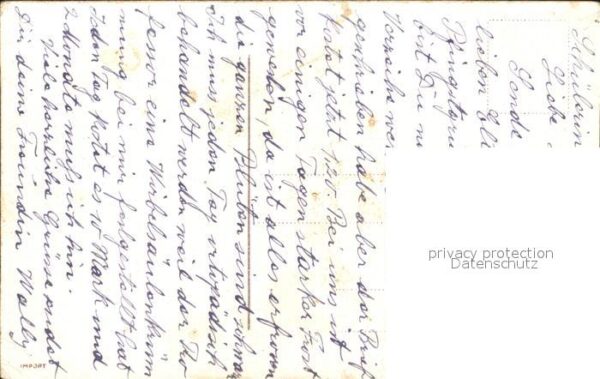 Schülerin
Liebe
Sende
lieben El
Pfingstgrü
bist Du n
Verzeihe we
geschrieben habe aber der Brief
kostet jetzt 120 Bei uns ist
vor einigen Tagen starker Frost
gewesen, da ist alles erfroren
die ganzen Blüten sind schwarz
Ich muss jeden Tag ortopädisch
behandelt werden weil der Pro
fessor eine Wirbelsäulenkrüm
mung bei mir festgestellt hat
Jeden Tag kostet es 10 Mark und
2 Monate muss ich hin.
Viele herzliche Grüsse sendet
Dir deine Freundin Wally
IMPORT
privacy protection
Datenschutz